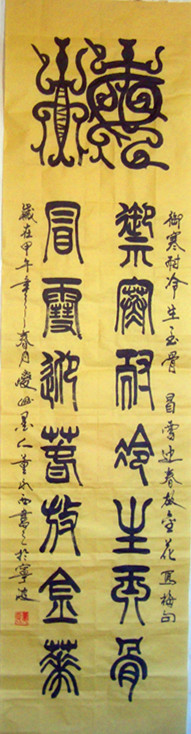 御寒耐冷生玉骨 冒雪迎春放金花 写梅句
禦寒耐冷生玉骨
冒雪迎春放金華
歲在甲午年之春月 墨人董書之於寧波